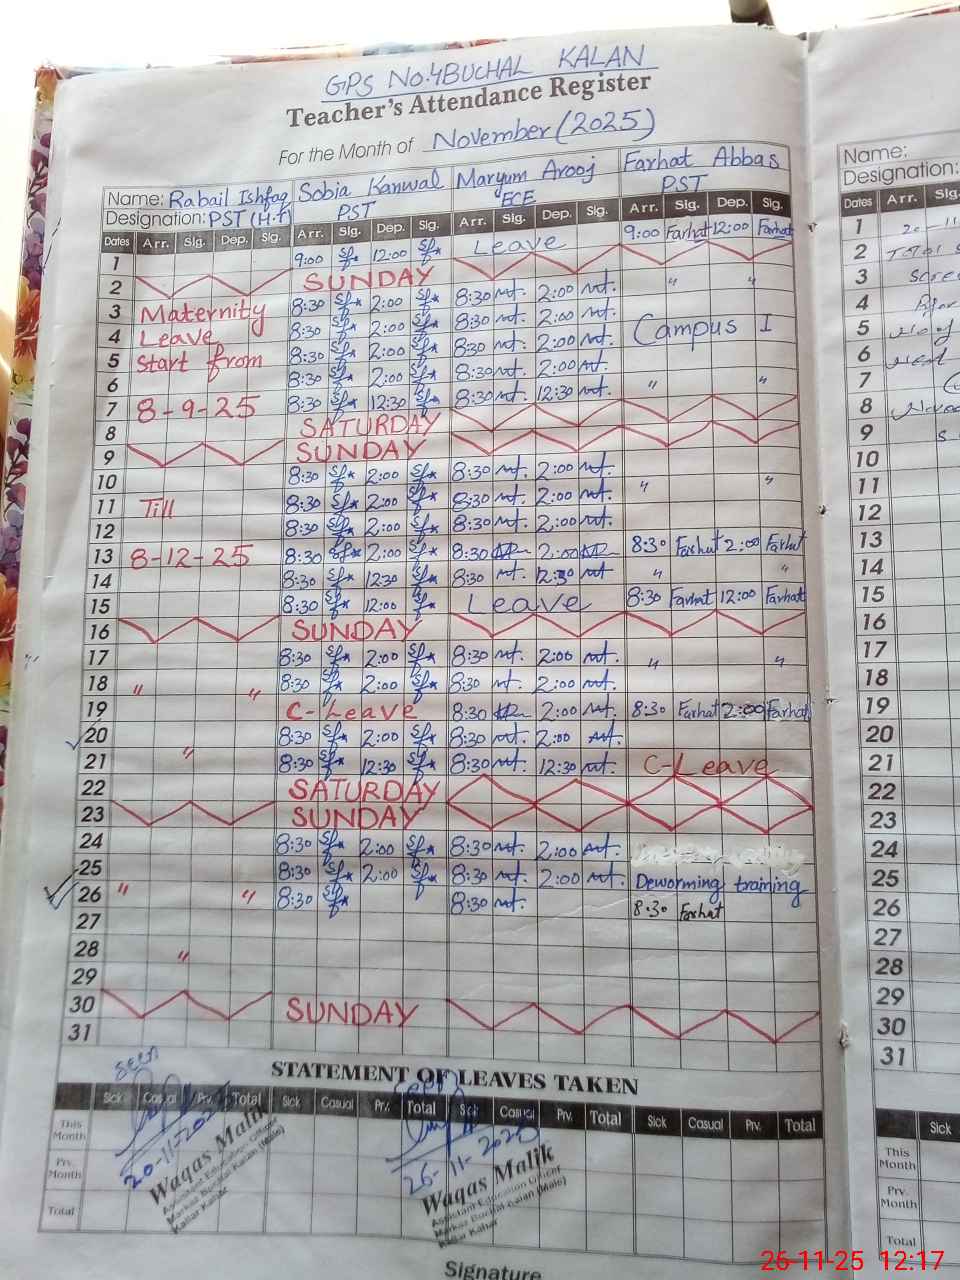 GPS No.4 BUCHAL KALAN
Teacher's Attendance Register
For the Month of November (2025)
Name: Rabail Ishfaq Sobia Kanwal Maryum Arooj Farhat Abbas
Designation: PST (H.T) PST ECE PST
Dates Arr. Sig. Dep. Sig. Arr. Sig. Dep. Sig. Arr. Sig. Dep. Sig. Arr. Sig. Dep. Sig.
1 9:00 12:00 Leave 9:00 Farhat 12:00 Farhat
2 SUNDAY
3 Maternity 8:30 2:00 8:30 mt. 2:00 mt. " "
4 Leave 8:30 2:00 8:30 mt. 2:00 mt.
5 Start from 8:30 2:00 8:30 mt. 2:00 mt. Campus I
6 8:30 2:00 8:30 mt. 2:00 mt.
7 8-9-25 8:30 12:30 8:30 mt. 12:30 mt. " "
8 SATURDAY
9 SUNDAY
10 8:30 2:00 8:30 mt. 2:00 mt.
11 Till 8:30 2:00 8:30 mt. 2:00 mt. " "
12 8:30 2:00 8:30 mt. 2:00 mt.
13 8-12-25 8:30 2:00 8:30 2:00 8:30 Farhat 2:00 Farhat
14 8:30 12:30 8:30 mt. 12:30 mt " "
15 8:30 12:00 Leave 8:30 Farhat 12:00 Farhat
16 SUNDAY
17 8:30 2:00 8:30 mt. 2:00 mt. " "
18 " " 8:30 2:00 8:30 mt. 2:00 mt.
19 C-Leave 8:30 2:00 mt. 8:30 Farhat 2:00 Farhat
20 8:30 2:00 8:30 mt. 2:00 mt.
21 " 8:30 12:30 8:30 mt. 12:30 mt. C-Leave
22 SATURDAY
23 SUNDAY
24 8:30 2:00 8:30 mt. 2:00 mt.
25 8:30 2:00 8:30 mt. 2:00 mt. Deworming training
26 " " 8:30 8:30 mt. 8:30 Farhat
27
28 "
29
30 SUNDAY
31
STATEMENT OF LEAVES TAKEN
Sick Casual Prv. Total Sick Casual Prv. Total Sick Casual Prv. Total Sick Casual Prv. Total
This Month
Prv. Month
Total
seen
20-11-2025
Waqas Malik
Assistant Education Officer
Markaz Buchal Kalan (Male)
Kallar Kahar
seen
26-11-2025
Waqas Malik
Assistant Education Officer
Markaz Buchal Kalan (Male)
Kallar Kahar
Signature
Name:
Designation:
Dates Arr. Sig.
1
2
3
4
5
6
7
8
9
10
11
12
13
14
15
16
17
18
19
20
21
22
23
24
25
26
27
28
29
30
31
Sick
This Month
Prv. Month
Total
26-11-25 12:17